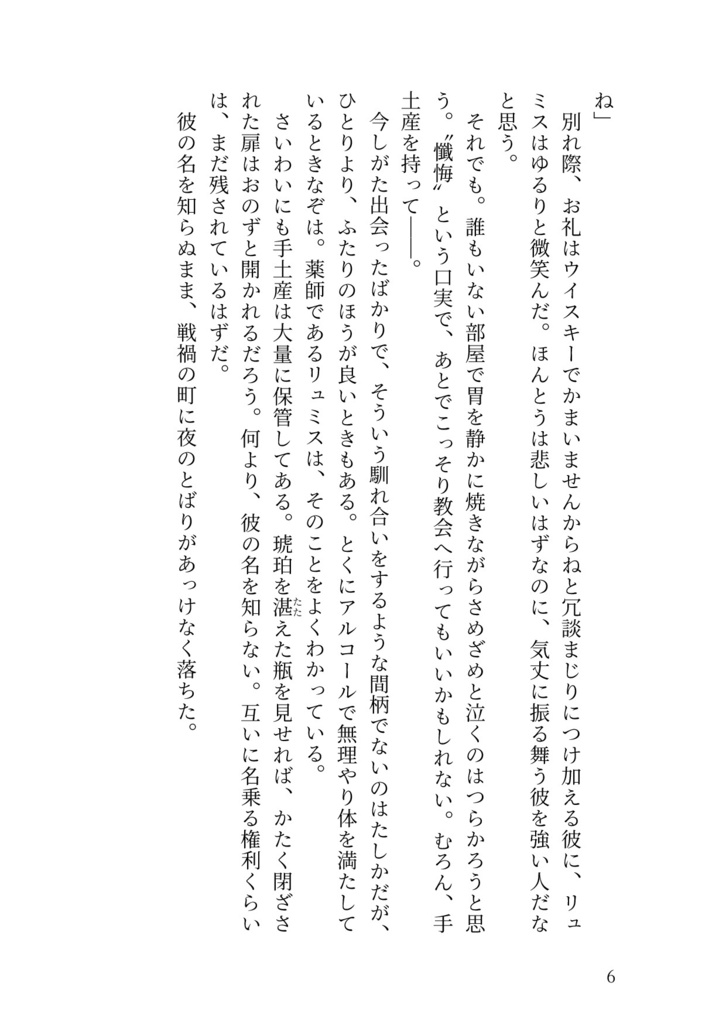 ね」
　別れ際、お礼はウイスキーでかまいませんからねと冗談まじりにつけ加える彼に、リュ
ミスはゆるりと微笑んだ。ほんとうは悲しいはずなのに、気丈に振る舞う彼を強い人だな
と思う。
　それでも。誰もいない部屋で胃を静かに焼きながらさめざめと泣くのはつらかろうと思
う。〝懺悔〟という口実で、あとでこっそり教会へ行ってもいいかもしれない。むろん、手
土産を持って――。
　今しがた出会ったばかりで、そういう馴れ合いをするような間柄でないのはたしかだが、
ひとりより、ふたりのほうが良いときもある。とくにアルコールで無理やり体を満たして
いるときなぞは。薬師であるリュミスは、そのことをよくわかっている。
　さいわいにも手土産は大量に保管してある。琥珀を湛えた瓶を見せれば、かたく閉ざさ
たた
れた扉はおのずと開かれるだろう。何より、彼の名を知らない。互いに名乗る権利くらい
は、まだ残されているはずだ。
　彼の名を知らぬまま、戦禍の町に夜のとばりがあっけなく落ちた。
6